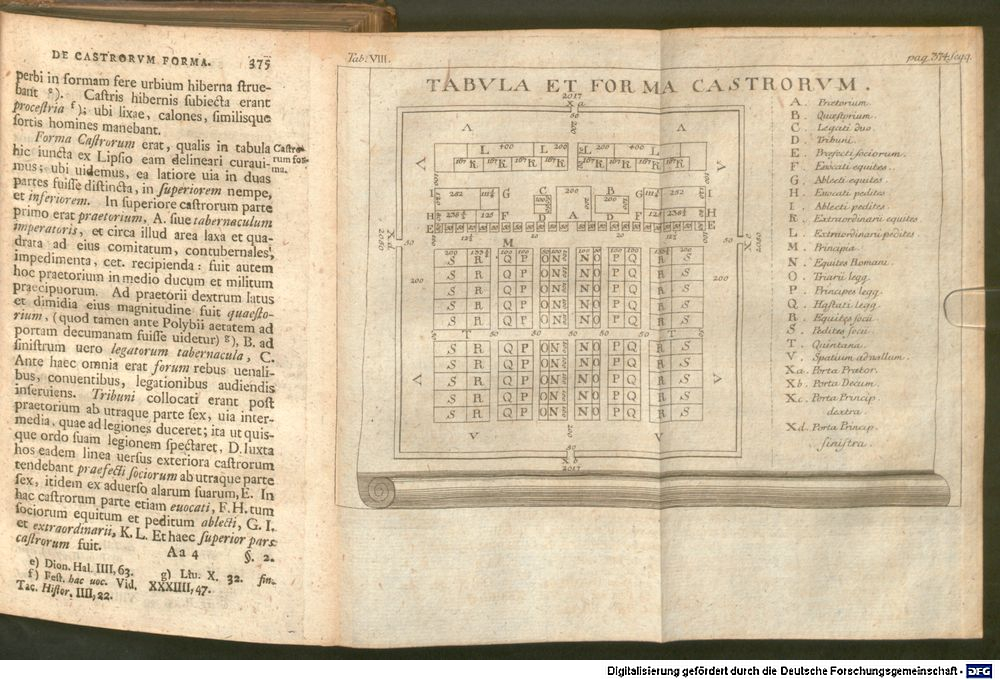 DE CASTRORVM FORMA. 375
perbi in formam fere urbium hiberna strue-
bant e). Castris hibernis subiecta erant
procestria f); ubi lixae, calones, similisque
sortis homines manebant.
Forma Castrorum erat, qualis in tabula
Castro-
rum for-
ma.
hic iuncta ex Lipsio eam delineari curaui-
mus; ubi uidemus, ea latiore uia in duas
partes fuisse distincta, in superiorem nempe,
et inferiorem. In superiore castrorum parte
primo erat praetorium, A. siue tabernaculum
imperatoris, et circa illud area laxa et qua-
drata ad eius comitatum, contubernales,
impedimenta, cet. recipienda: fuit autem
hoc praetorium in medio ducum et militum
praecipuorum. Ad praetorii dextrum latus
et dimidia eius magnitudine fuit quaesto-
rium, (quod tamen ante Polybii aetatem ad
portam decumanam fuisse uidetur) g), B. ad
sinistrum uero legatorum tabernacula, C.
Ante haec omnia erat forum rebus uenali-
bus, conuentibus, legationibus audiendis
inseruiens. Tribuni collocati erant post
praetorium ab utraque parte sex, uia inter-
media, quae ad legiones duceret; ita ut quis-
que ordo suam legionem spectaret, D. Iuxta
hos eadem linea uersus exteriora castrorum
tendebant praefecti sociorum ab utraque parte
sex, itidem ex aduerso alarum suarum, E. In
hac castrorum parte etiam euocati, F. H. tum
sociorum equitum et peditum ablecti, G. I.
et extraordinarii, K. L. Et haec superior pars
castrorum fuit.
Aa 4 §. 2.
e) Dion. Hal. IIII, 63. g) Liu. X. 32. fin.
f) Fest. hac uoc. Vid. XXXIIII, 47.
Tac. Histor. IIII, 22.
Tab. VIII. pag. 374. seqq.
TABVLA ET FORMA CASTRORVM.
2017
X a
50
200
A. Praetorium.
B. Quaestorium.
C. Legati duo.
D. Tribuni.
E. Praefecti sociorum.
F. Evocati equites.
G. Ablecti equites.
H. Evocati pedites.
I. Ablecti pedites.
K. Extraordinarii equites
L. Extraordinarii pedites.
M. Principia.
N. Equites Romani.
O. Triarii legg.
P. Principes legg.
Q. Hastati legg.
R. Equites socii.
S. Pedites socii.
T. Quintana.
V. Spatium ad vallum.
Xa. Porta Praetor.
Xb. Porta Decum.
Xc. Porta Princip.
dextra.
Xd. Porta Princip.
sinistra.
V V
L 400 L 200 L 200 400 L
167 K 167 K 167 K 167 K 167 K 167 K 167 K 167 K
I 282 G C 200 B G 282 I
H F D A D F H
E E
M
S R Q P O N N O P Q R S
S R Q P O N N O P Q R S
S R Q P O N N O P Q R S
S R Q P O N N O P Q R S
S R Q P O N N O P Q R S
T 50 50 50 50 50
S R Q P O N N O P Q R S
S R Q P O N N O P Q R S
S R Q P O N N O P Q R S
S R Q P O N N O P Q R S
S R Q P O N N O P Q R S
V V
200
50
X b
2017
Digitalisierung gefördert durch die Deutsche Forschungsgemeinschaft - DFG